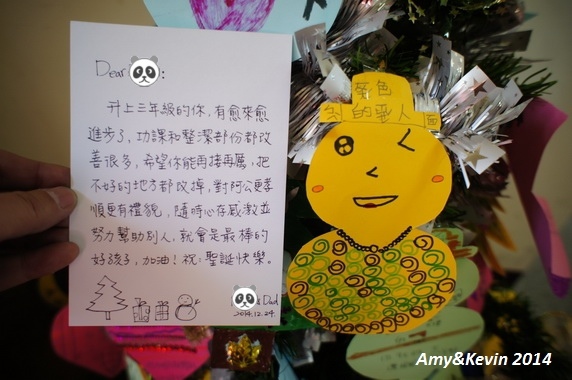 Dear :
升上三年級的你，有愈來愈
進步了，功課和整潔部份都改
善很多，希望你能再接再厲，把
不好的地方都改掉，對阿公更孝
順更有禮貌，隨時心存感激並
努力幫助別人，就會是最棒的
好孩子，加油！祝：聖誕快樂。
& Dad
2014.12.24.
彩色
的
人
Amy&Kevin 2014